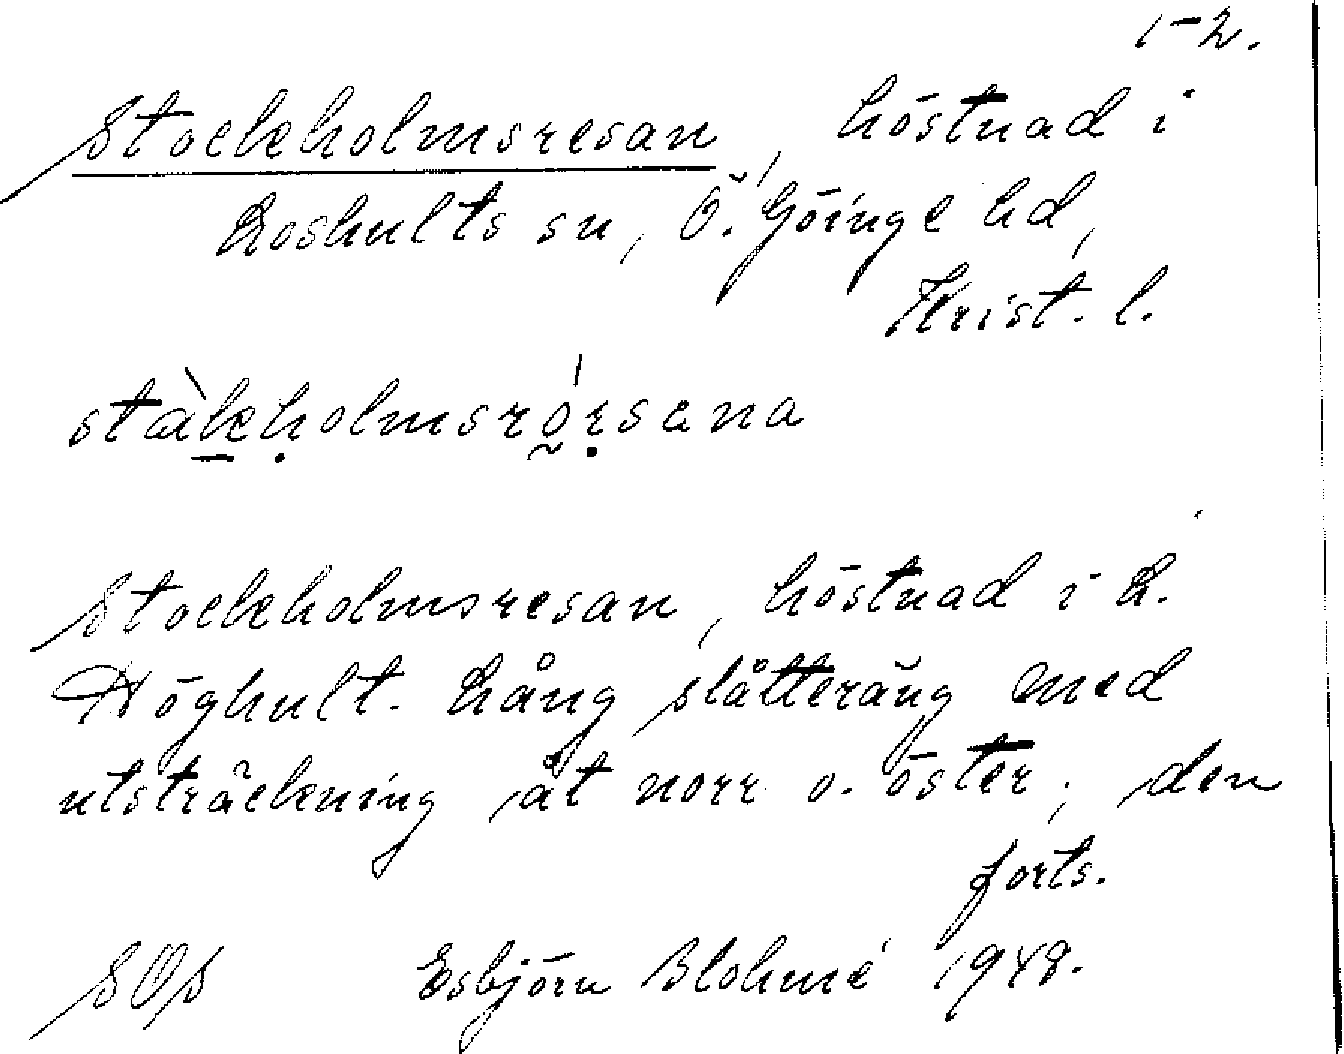 1-2.
Stockholmsresan, höstnad i
Loshults sn, Ö. Göinge hd,
Krist. l.
Stockholmsresan, höstnad i L.
Höghult. Lång slåtteräng med
utsträckning åt norr o. öster; den
forts.
SOS Esbjörn Blohmé 1948.